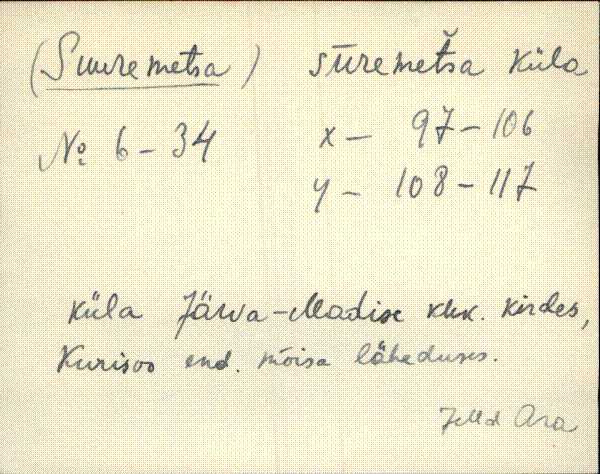 (Suuremetsa) sūremetša küla
№ 6-34 x- 97-106
y- 108-117
küla Järva-Madise khk. kirdes,
Kurisoo end. mõisa läheduses.